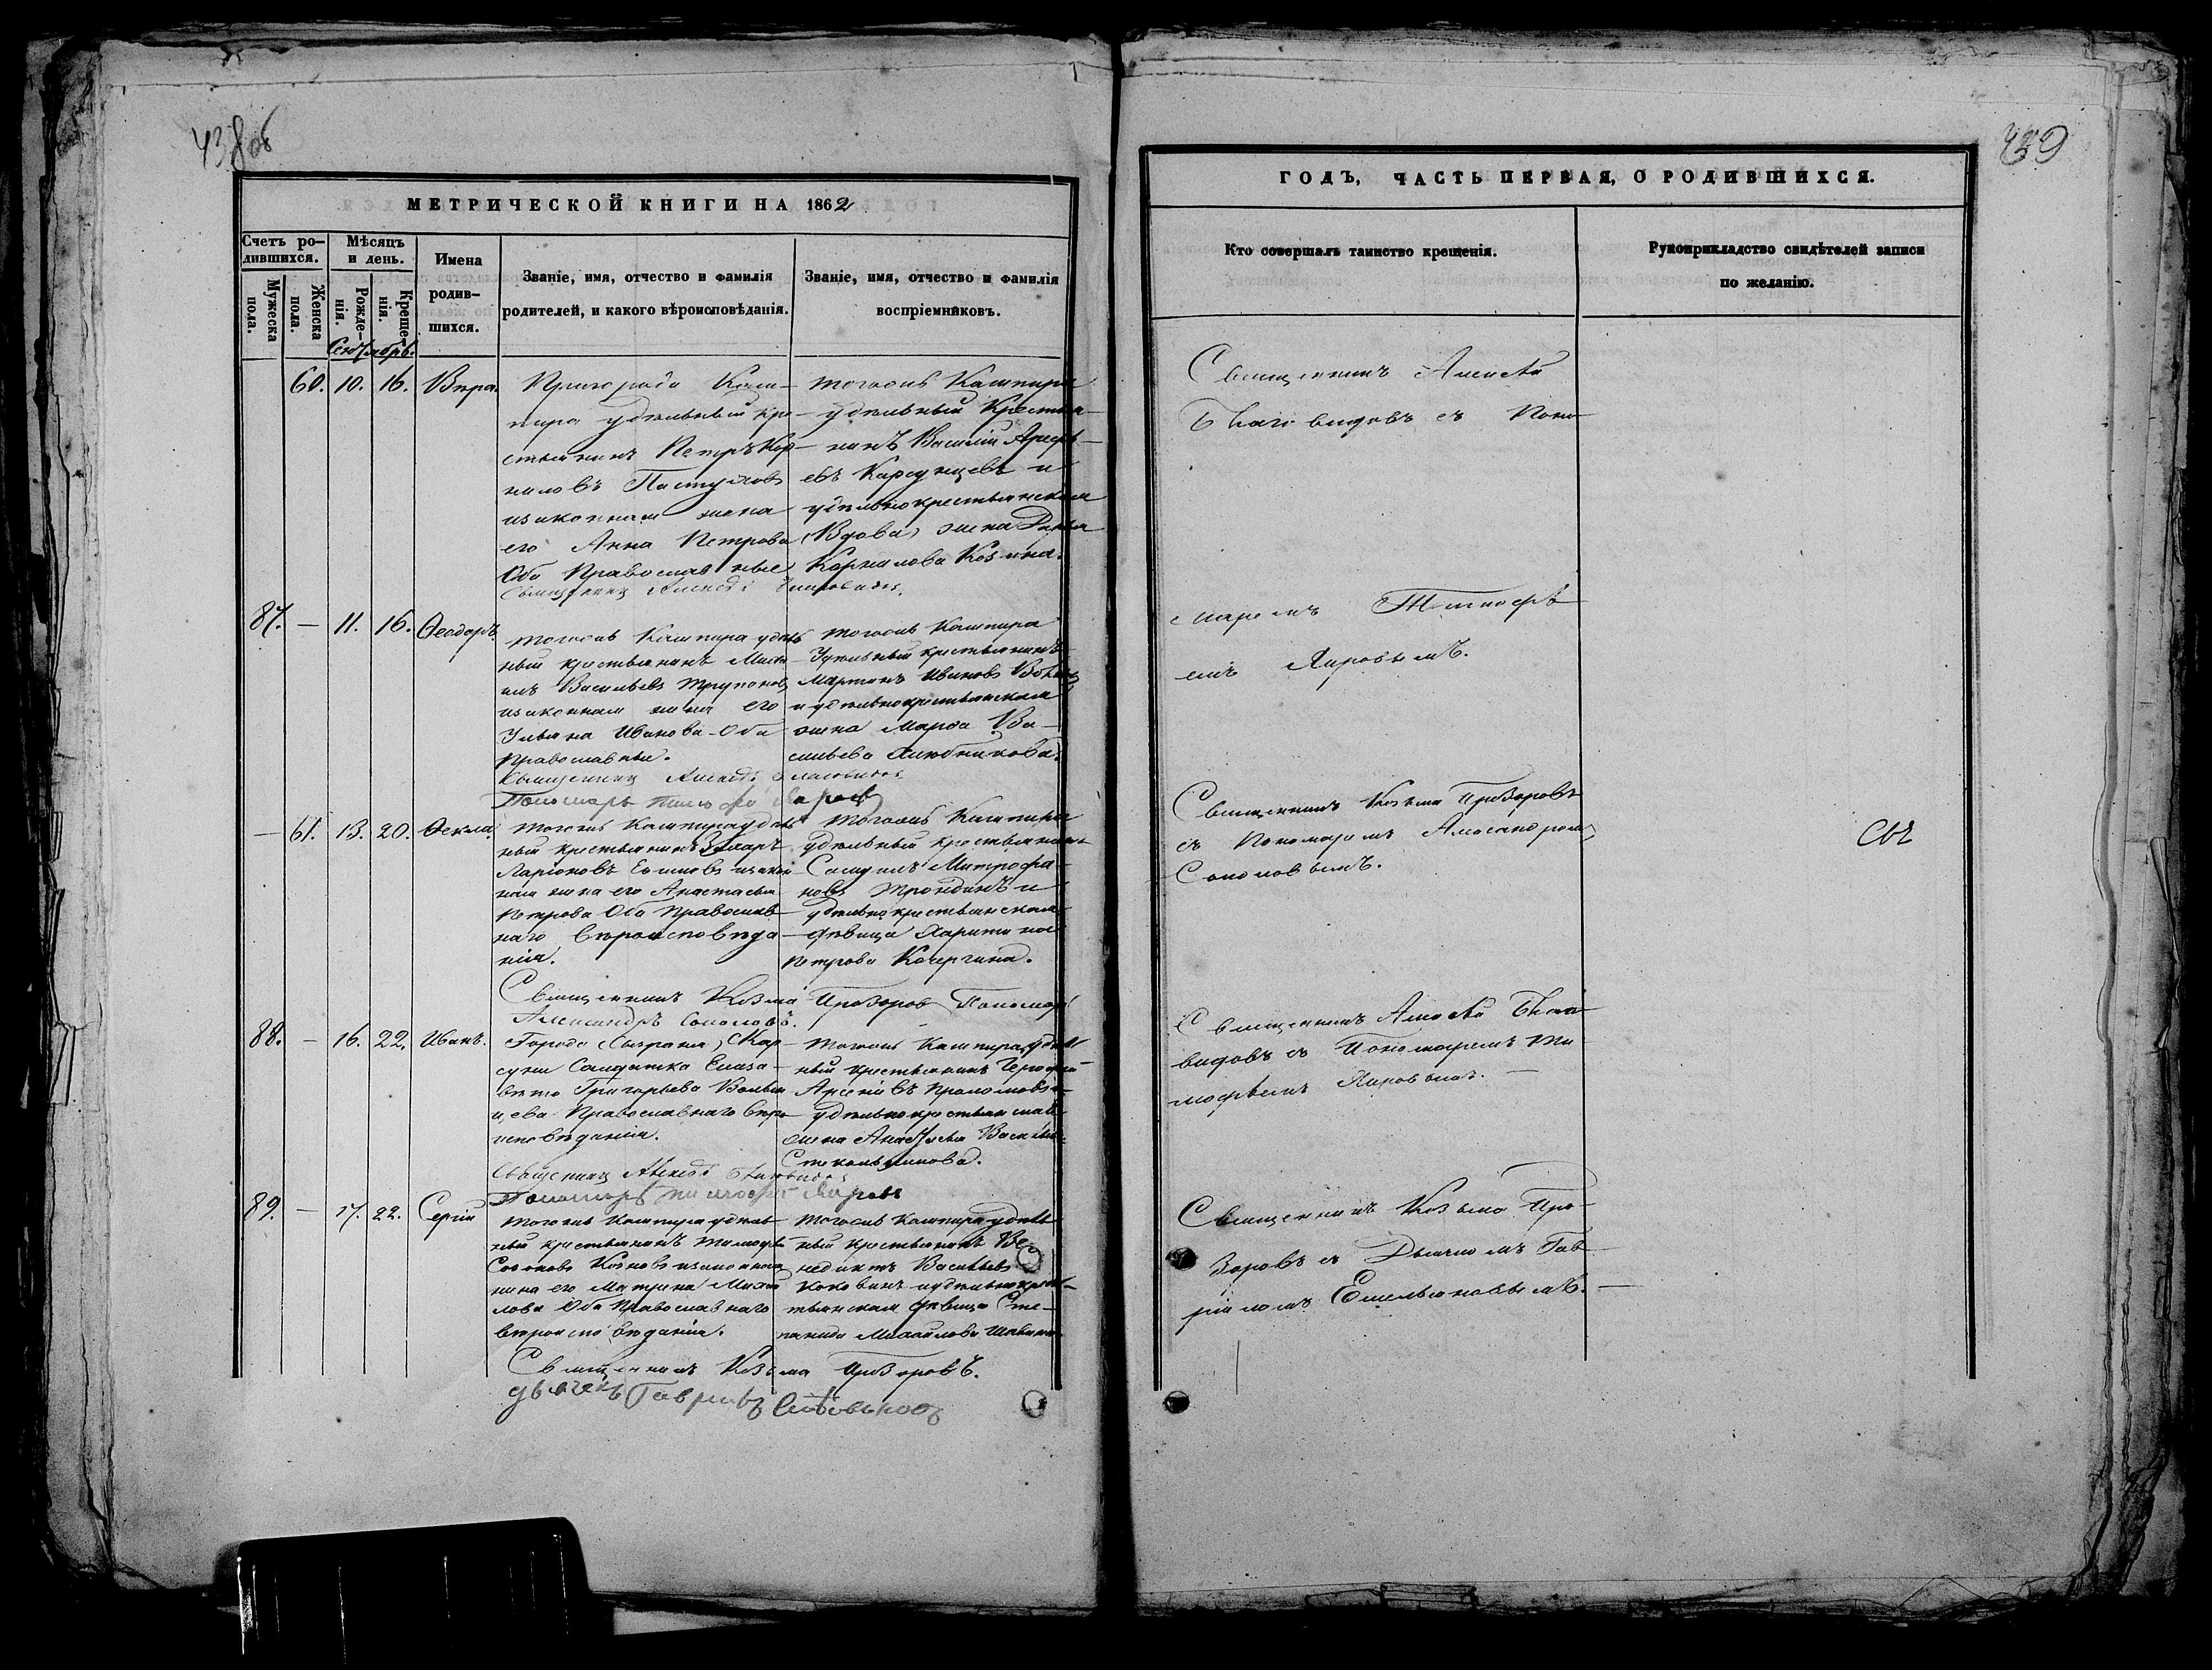 438об
МЕТРИЧЕСКОЙ КНИГИ НА 1862
Счетъ ро-
дившихся.
Мужеска
пола.
Женска
пола.
Мѣсяцъ
и день.
Рожде-
нія.
Креще-
нія.
Сентябрь.
Имена
родив-
шихся.
Званіе, имя, отчество и фамилія
родителей, и какого вѣроисповѣданія.
Званіе, имя, отчество и фамилія
воспріемниковъ.
60. 10. 16. Вѣра.
Пригорода Каш-
пира удѣльный кре-
стьянинъ Петръ Кор-
ниловъ
и законная жена
его Анна Петрова
Оба Православные
Священникъ Алексѣй Благовидовъ
тогожъ Кашпира
удѣльный Крестья-
нинъ Василій Арефь-
евъ Карсунцевъ и
удѣльнокрестьянская
(Вдова) жена Дарья
Корнилова Козина.
87. — 11. 16. Ѳеодоръ.
тогожъ Кашпира удѣль
ный крестьянинъ Миха
илъ Васильевъ Труновъ
и законная жена его
Ульяна Иванова Оба
Православные.
Священникъ Алексѣй Благовидовъ
Пономарь Тимофей Лировъ
тогожъ Кашпира
Удѣльный крестьянинъ
Мартинъ Ивановъ
и удѣльнокрестьянская
жена Марѳа Ва-
сильева
— 61. 13. 20. Ѳекла.
тогожъ Кашпира удѣль
ный крестьянинъ Захаръ
Ларіоновъ и закон
ная жена его Анастасья
Петрова Оба Православ
наго вѣроисповѣда
нія.
тогожъ Кашпира
удѣльный крестьянинъ
Самуилъ Митрофа-
новъ и
удѣльнокрестьянская
дѣвица Харитина
Петрова Кочергина.
Священникъ Козма Прозоровъ Пономарь
Александръ Соколовъ.
88. — 16. 22. Иванъ.
Города (Сызрана)
Солдатка Елиза-
вета Григорьева
Православнаго вѣро
исповѣданія.
тогожъ Кашпира удѣль
ный крестьянинъ
Арсеніевъ
удѣльнокрестьянская
жена Анастасья Василье
Стекольщикова.
Священникъ Алексѣй Благовидовъ
Пономарь Тимофей Лировъ
89. — 17. 22. Сергій
тогожъ Кашпира удѣль-
ный крестьянинъ Тимофей
и законная
жена его Матрена Михай
лова Оба Православнаго
вѣроисповѣданія.
тогожъ Кашпира удѣль
ный крестьянинъ Ве-
недиктъ Васильевъ
и удѣльнокресть-
тьянская дѣвица Сте-
панида Михайлова
Священникъ Козьма Прозоровъ.
дьячекъ Гавріилъ
439
ГОДЪ, ЧАСТЬ ПЕРВАЯ, О РОДИВШИХСЯ.
Кто совершалъ таинство крещенія.
Рукоприкладство свидѣтелей записи
по желанію.
Священникъ Алексѣй
Благовидовъ съ Поно
маремъ Тимофѣ
емъ Лировымъ.
Священникъ Козьма Прозоровъ
съ Пономаремъ Александромъ
Соколовымъ.
Священникъ Алексѣй Благо
видовъ съ Пономаремъ Ти
мофѣемъ Лировымъ. —
Священникъ Козьма Про-
зоровъ съ Дьячкомъ Гав
ріиломъ Емельяновымъ. —